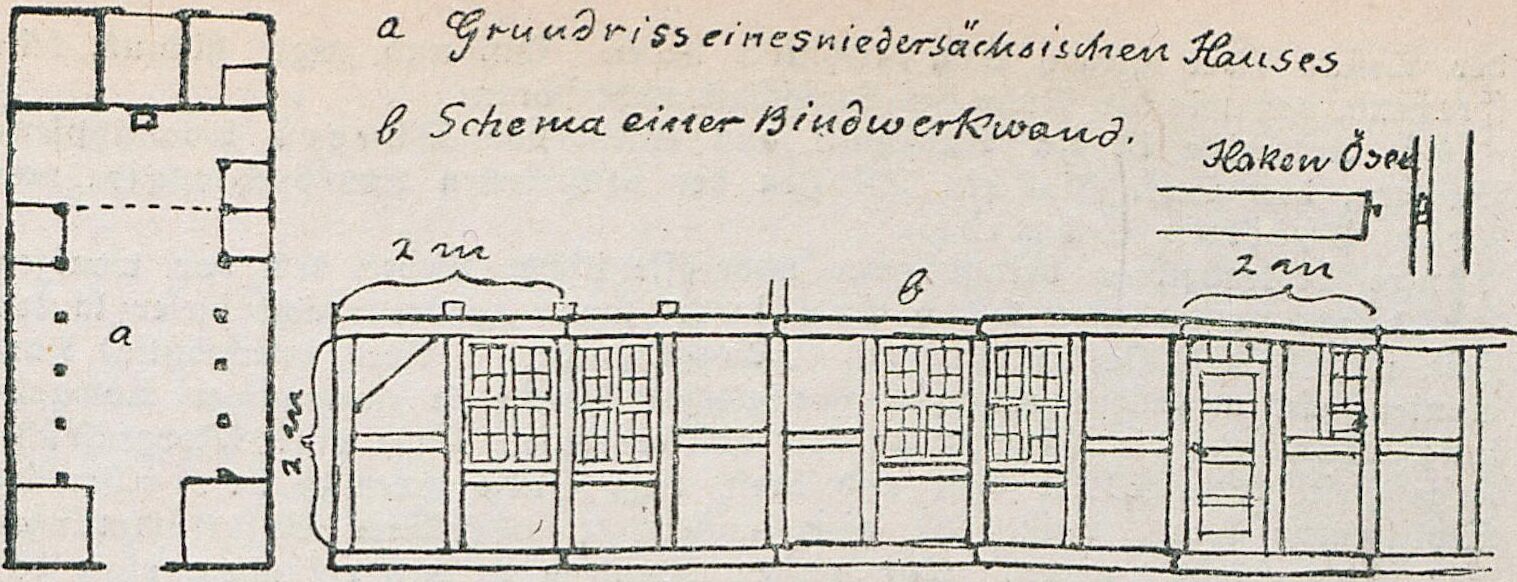 a Grundriss eines niedersächsischen Hauses
b Schema einer Bindwerkwand.
Haken Ösen
2 m
b
2 m
a
2 m